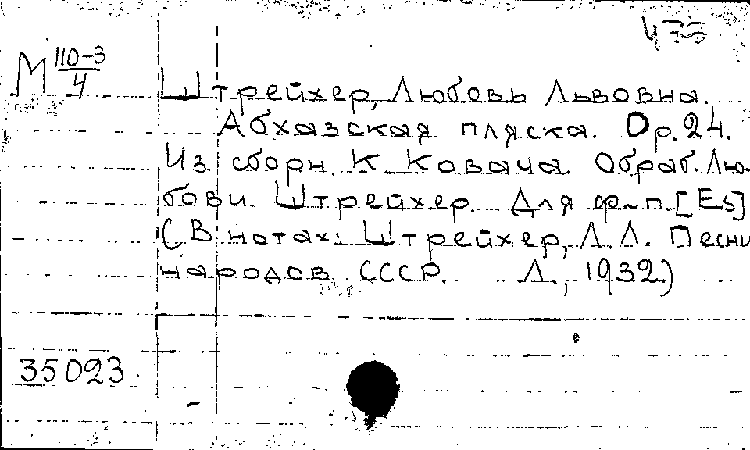 475
М 110-3
4
Штрейхер, Любовь Львовна.
Абхазская пляска. Ор. 24.
Из сборн. К. Ковача. Обраб. Лю-
бови Штрейхер. Для ф-п. [Es]
(В нотах: Штрейхер, Л. Л. Песни
народов СССР. Л., 1932.)
35023